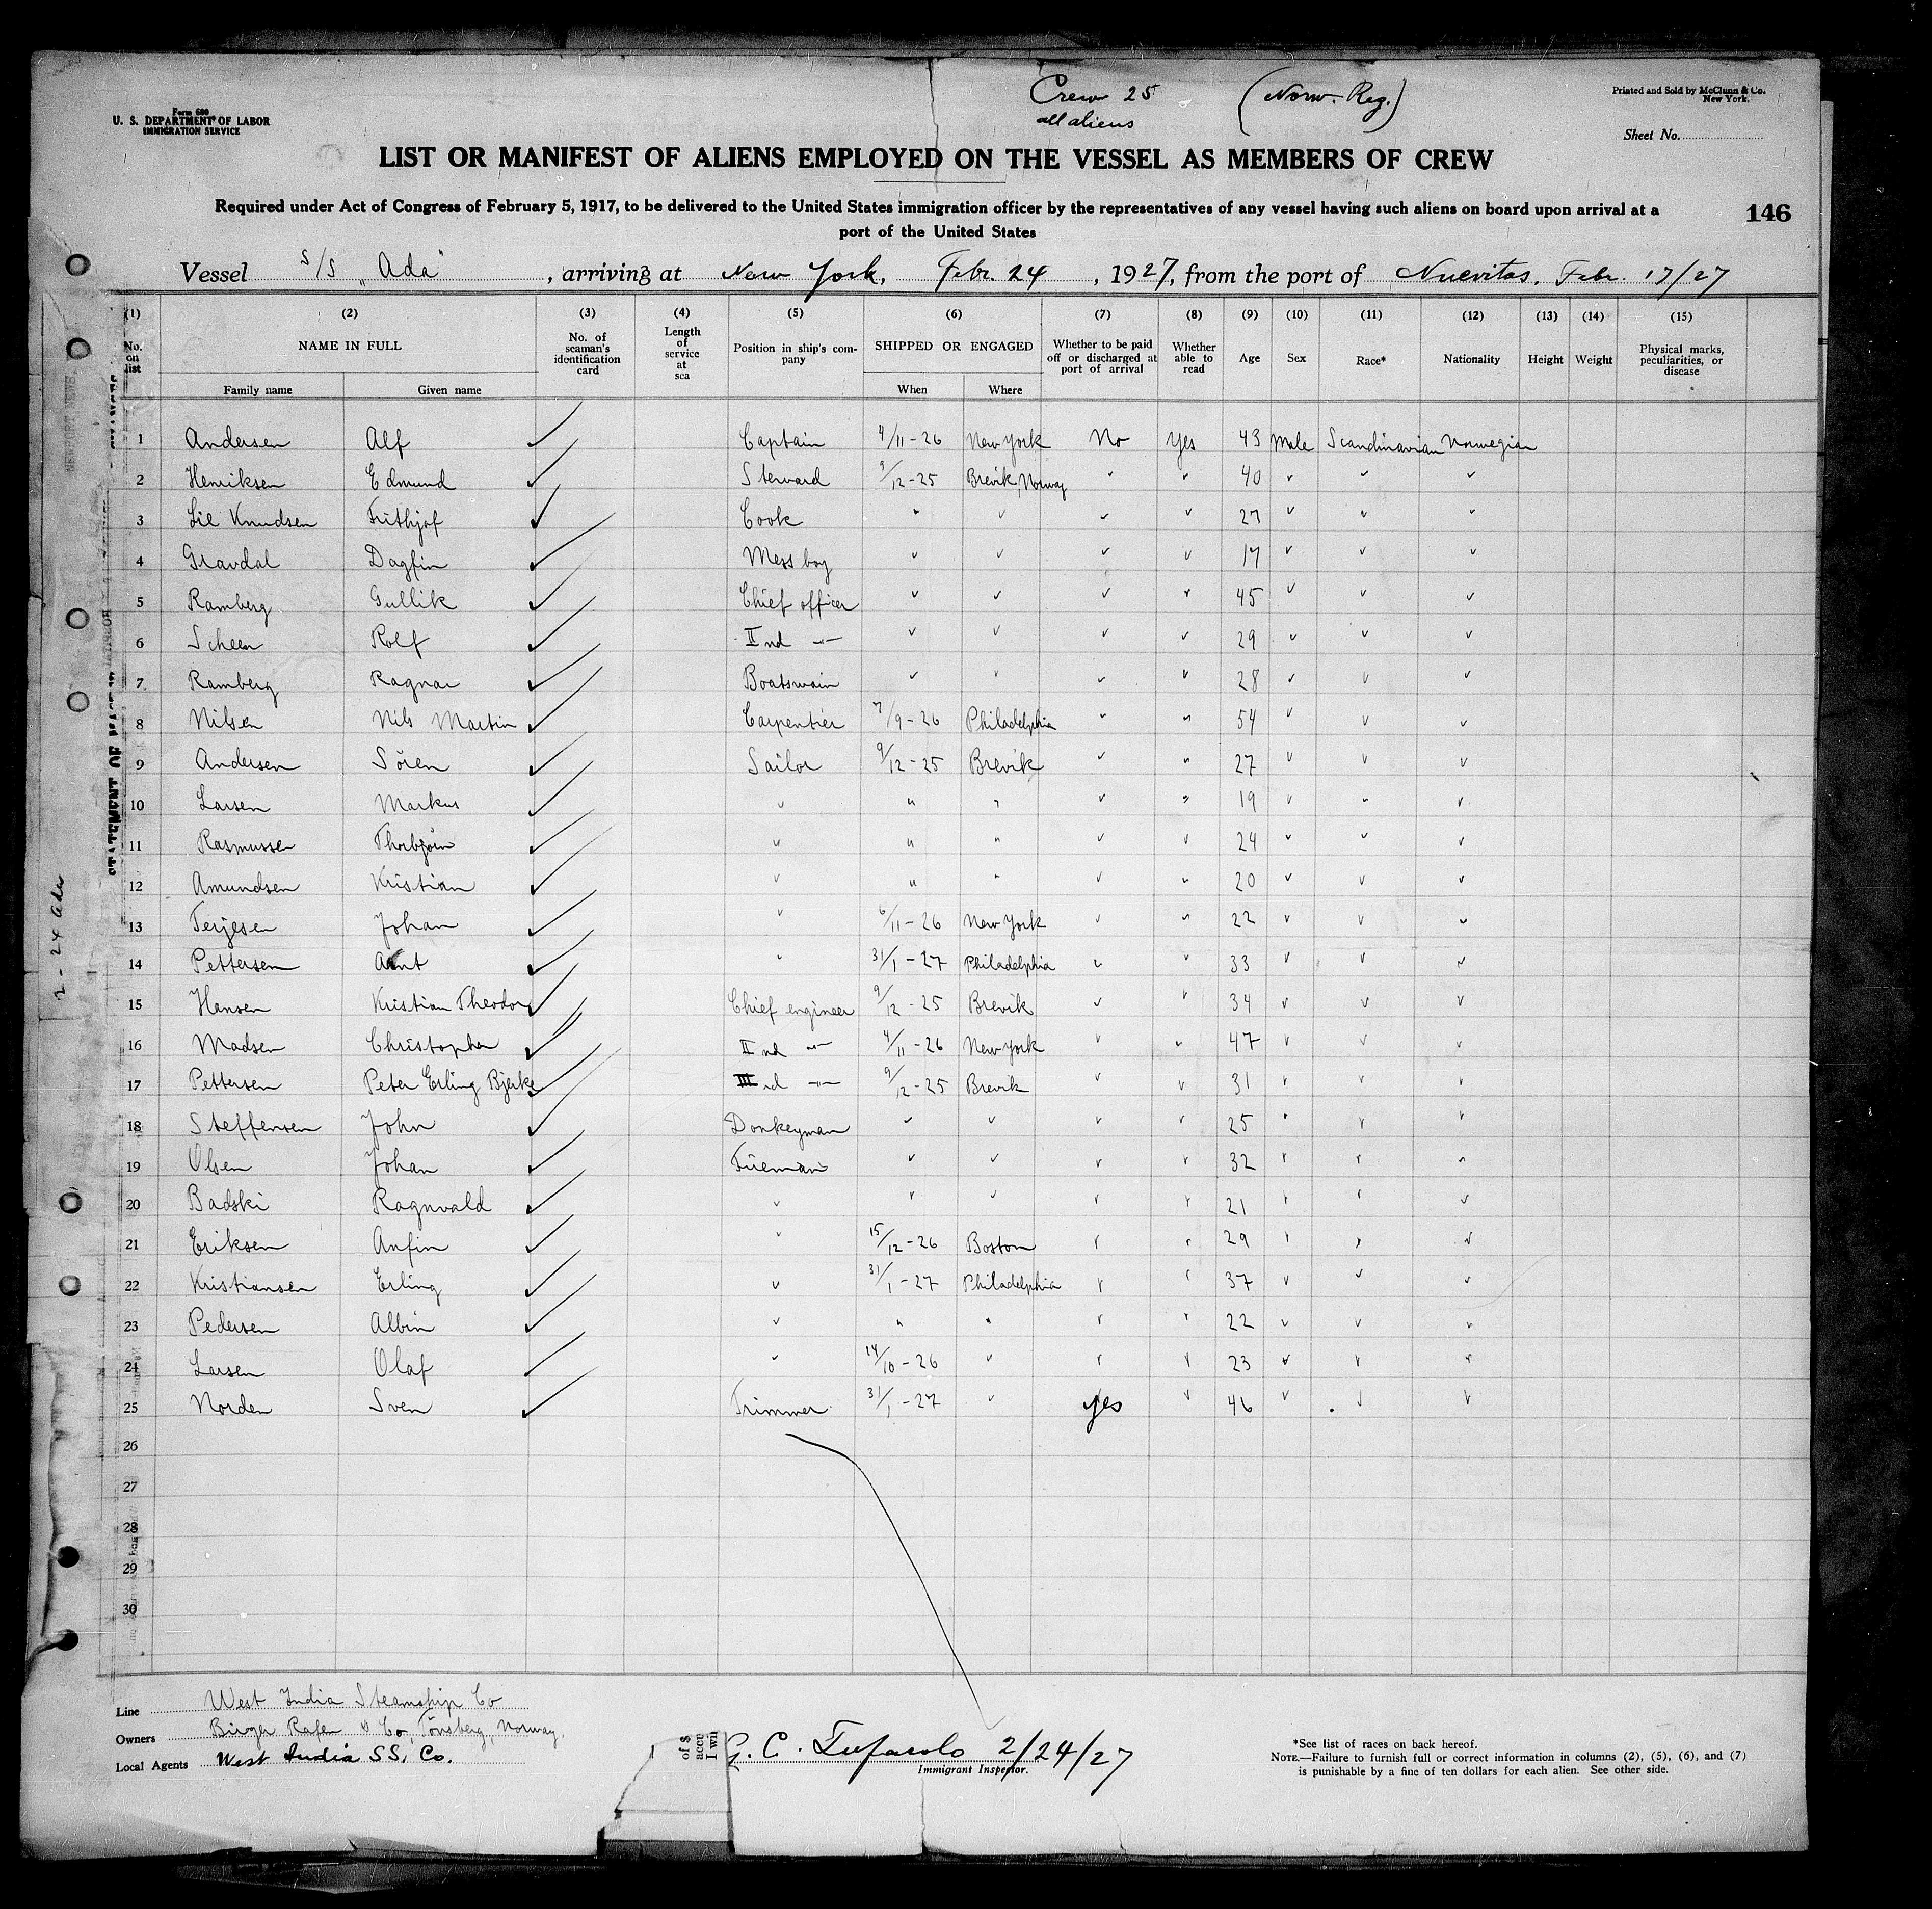 Crew 25 (Norw. Reg.)
all aliens
Printed and Sold by McClunn & Co.
New York.
Form 680
U. S. DEPARTMENT OF LABOR
IMMIGRATION SERVICE
Sheet No.
LIST OR MANIFEST OF ALIENS EMPLOYED ON THE VESSEL AS MEMBERS OF CREW
Required under Act of Congress of February 5, 1917, to be delivered to the United States immigration officer by the representatives of any vessel having such aliens on board upon arrival at a
port of the United States
146
Vessel S/S „Ada", arriving at New York, Febr. 24, 1927, from the port of Nuevitas, Febr. 17/27
(1) (2) (3) (4) (5) (6) (7) (8) (9) (10) (11) (12) (13) (14) (15)
No. on list NAME IN FULL No. of seaman's identification card Length of service at sea Position in ship's company SHIPPED OR ENGAGED Whether to be paid off or discharged at port of arrival Whether able to read Age Sex Race* Nationality Height Weight Physical marks, peculiarities, or disease
Family name Given name When Where
1 Andersen Alf Captain 4/11-26 New York No Yes 43 Male Scandinavian Norwegian
2 Henriksen Edmund Steward 9/12-25 Brevik, Norway " " 40 " " "
3 Lie Knudsen Frithjof Cook " " " " 27 " " "
4 Gravdal Dagfin Mess boy " " " " 17 " " "
5 Ramberg Gullik Chief officer " " " " 45 " " "
6 Scheen Rolf IInd -"- " " " " 29 " " "
7 Ramberg Ragnar Boatswain " " " " 28 " " "
8 Nilsen Nils Martin Carpentier 7/9-26 Philadelphia " " 54 " " "
9 Andersen Sören Sailor 9/12-25 Brevik " " 27 " " "
10 Larsen Markus " " " " " 19 " " "
11 Rasmussen Thorbjörn " " " " " 24 " " "
12 Amundsen Kristian " " " " " 20 " " "
13 Terjesen Johan " 6/11-26 New York " " 22 " " "
14 Pettersen Arnt " 31/1-27 Philadelphia " " 33 " " "
15 Hansen Kristian Theodor Chief engineer 9/12-25 Brevik " " 34 " " "
16 Madsen Christopher IInd -"- 4/11-26 New York " " 47 " " "
17 Pettersen Peter Erling Bjerke IIIrd -"- 9/12-25 Brevik " " 31 " " "
18 Steffensen John Donkeyman " " " " 25 " " "
19 Olsen Johan Fireman " " " " 32 " " "
20 Badski Ragnvald " " " " " 21 " " "
21 Eriksen Anfin " 15/12-26 Boston " " 29 " " "
22 Kristiansen Erling " 31/1-27 Philadelphia " " 37 " " "
23 Pedersen Albin " " " " " 22 " " "
24 Larsen Olaf " 14/10-26 " " " 23 " " "
25 Norden Sven Trimmer 31/1-27 " yes " 46 " " "
26
27
28
29
30
2-24 Ada
Line West India Steamship Co
Owners Birger Rafen & Co, Tönsberg, Norway.
Local Agents West India SS, Co.
of $
accu
I wi
G. C. Tufarolo 2/24/27
Immigrant Inspector.
*See list of races on back hereof.
NOTE.—Failure to furnish full or correct information in columns (2), (5), (6), and (7)
is punishable by a fine of ten dollars for each alien. See other side.